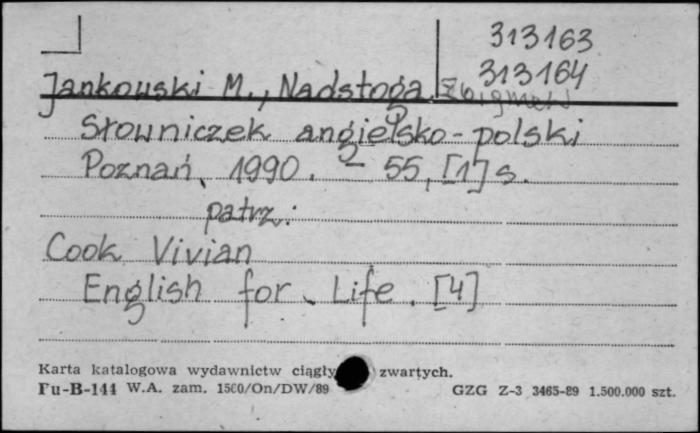 313163
313164
Jankowski M., Nadstoga Zbigniew
Słowniczek angielsko-polski
Poznań, 1990. - 55, [1] s.
patrz:
Cook Vivian
English for Life. [4]
Karta katalogowa wydawnictw ciągły zwartych.
Fu-B-144 W.A. zam. 1560/On/DW/89 GZG Z-3 3465-89 1.500.000 szt.